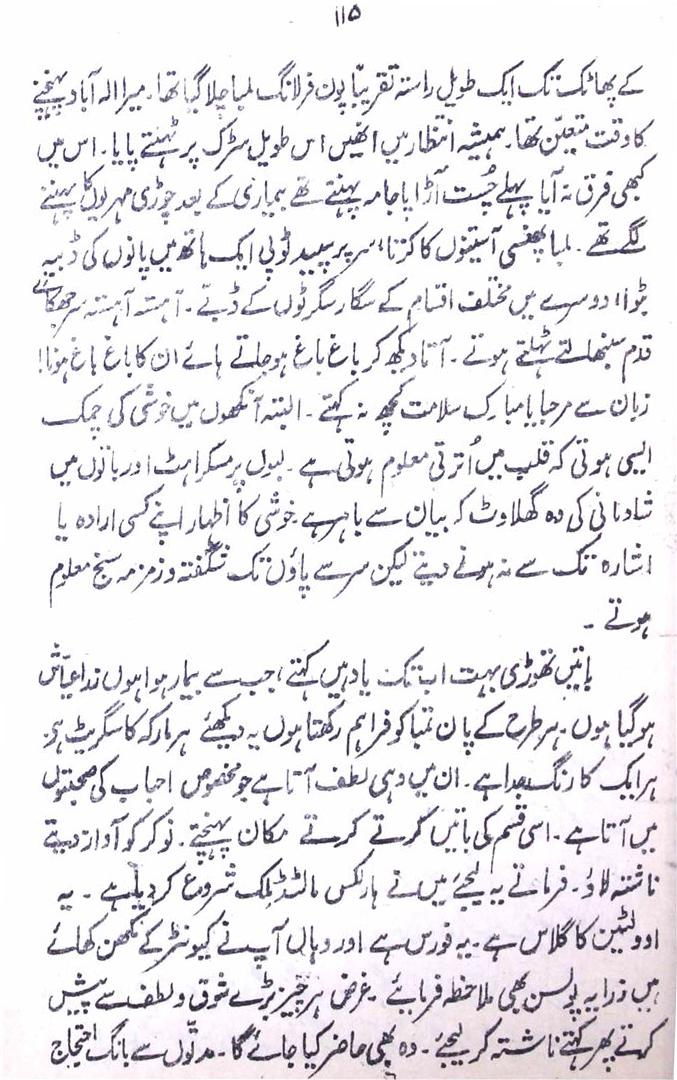 ۱۱۵
کے پھاٹک تک ایک طویل راستہ تقریباً پون فرلانگ لمبا چلا گیا تھا۔ میرا الہ آباد پہنچنے
کا وقت متعین تھا۔ ہمیشہ انتظار میں انھیں اس طویل سڑک پر ٹہلتے پایا۔ اس میں
کبھی فرق نہ آیا پہلے چُست آڑا پاجامہ پہنتے تھے بیماری کے بعد چوڑی مہریوں کا پہننے
لگے تھے۔ لمبا پھنسی آستینوں کا کرتا، سر پر سپید ٹوپی ایک ہاتھ میں پانوں کی ڈبیہ
بٹوا، دوسرے میں مختلف اقسام کے سگار سگرٹوں کے ڈبے۔ آہستہ آہستہ سر جھکائے
قدم سنبھالتے ٹہلتے ہوتے۔ آتا دیکھ کر باغ باغ ہو جاتے ہائے ان کا باغ باغ ہونا!
زبان سے مرحبا یا مبارک سلامت کچھ نہ کہتے۔ البتہ آنکھوں میں خوشی کی چمک
ایسی ہوتی کہ قلب میں اُترتی معلوم ہوتی ہے۔ لبوں پر مسکراہٹ اور باتوں میں
شادمانی کی وہ گھلاوٹ کہ بیان سے باہر ہے۔ خوشی کا اظہار اپنے کسی ارادہ یا
اشارہ تک سے نہ ہونے دیتے لیکن سر سے پاؤں تک شگفتہ و زمزمہ سنج معلوم
ہوتے۔
باتیں تھوڑی بہت اب تک یاد ہیں کہتے، جب سے بیمار ہوا ہوں ذرا عیاش
ہو گیا ہوں۔ ہر طرح کے پان تمباکو فراہم رکھتا ہوں یہ دیکھئے ہر مارکہ کا سگریٹ ہے۔
ہر ایک کا رنگ جدا ہے۔ ان میں وہی لطف آتا ہے جو مخصوص احباب کی صحبتوں
میں آتا ہے۔ اسی قسم کی باتیں کرتے کرتے مکان پہنچتے۔ نوکر کو آواز دیتے
ناشتہ لاؤ۔ فرماتے یہ لیجئے میں نے ہارلکس مالٹڈ ملک شروع کر دیا ہے۔ یہ
اوولٹین کا گلاس ہے۔ یہ فورس ہے اور وہاں آپ نے کیونٹر کے مکھن کھائے
ہیں ذرا یہ پولسن بھی ملاحظہ فرمائیے۔ غرض ہر چیز بڑے شوق و لطف سے پیش
کرتے پھر کہتے ناشتہ کر لیجئے۔ وہ بھی حاضر کیا جائے گا۔ مدتوں سے بانگ احتجاج